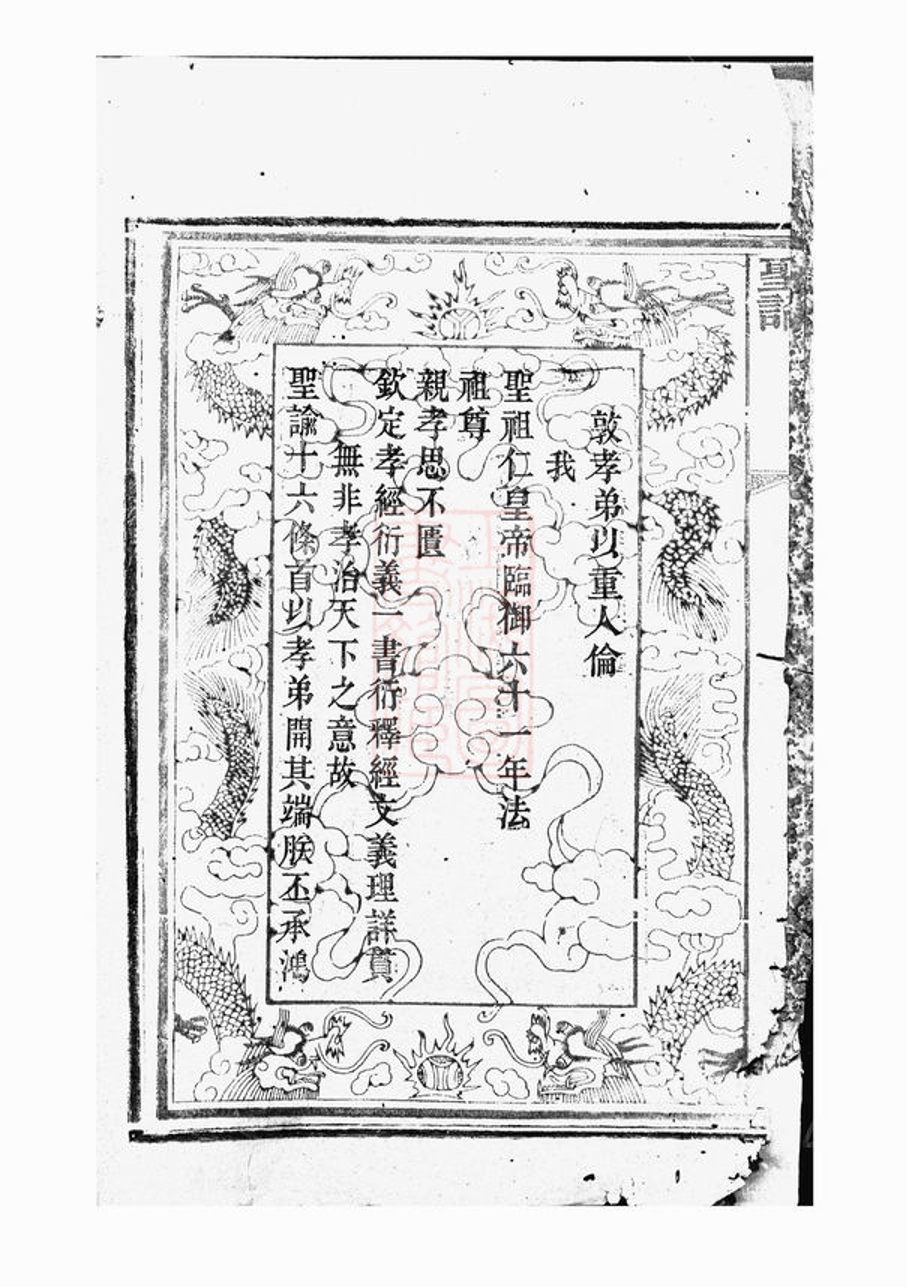 聖
敦孝弟以重人倫
我
聖祖仁皇帝臨御六十一年法
祖尊
親孝思不匱
欽定孝經衍義一書衍釋經文義理詳貫
無非孝治天下之意故
聖諭十六條首以孝弟開其端朕丕承鴻